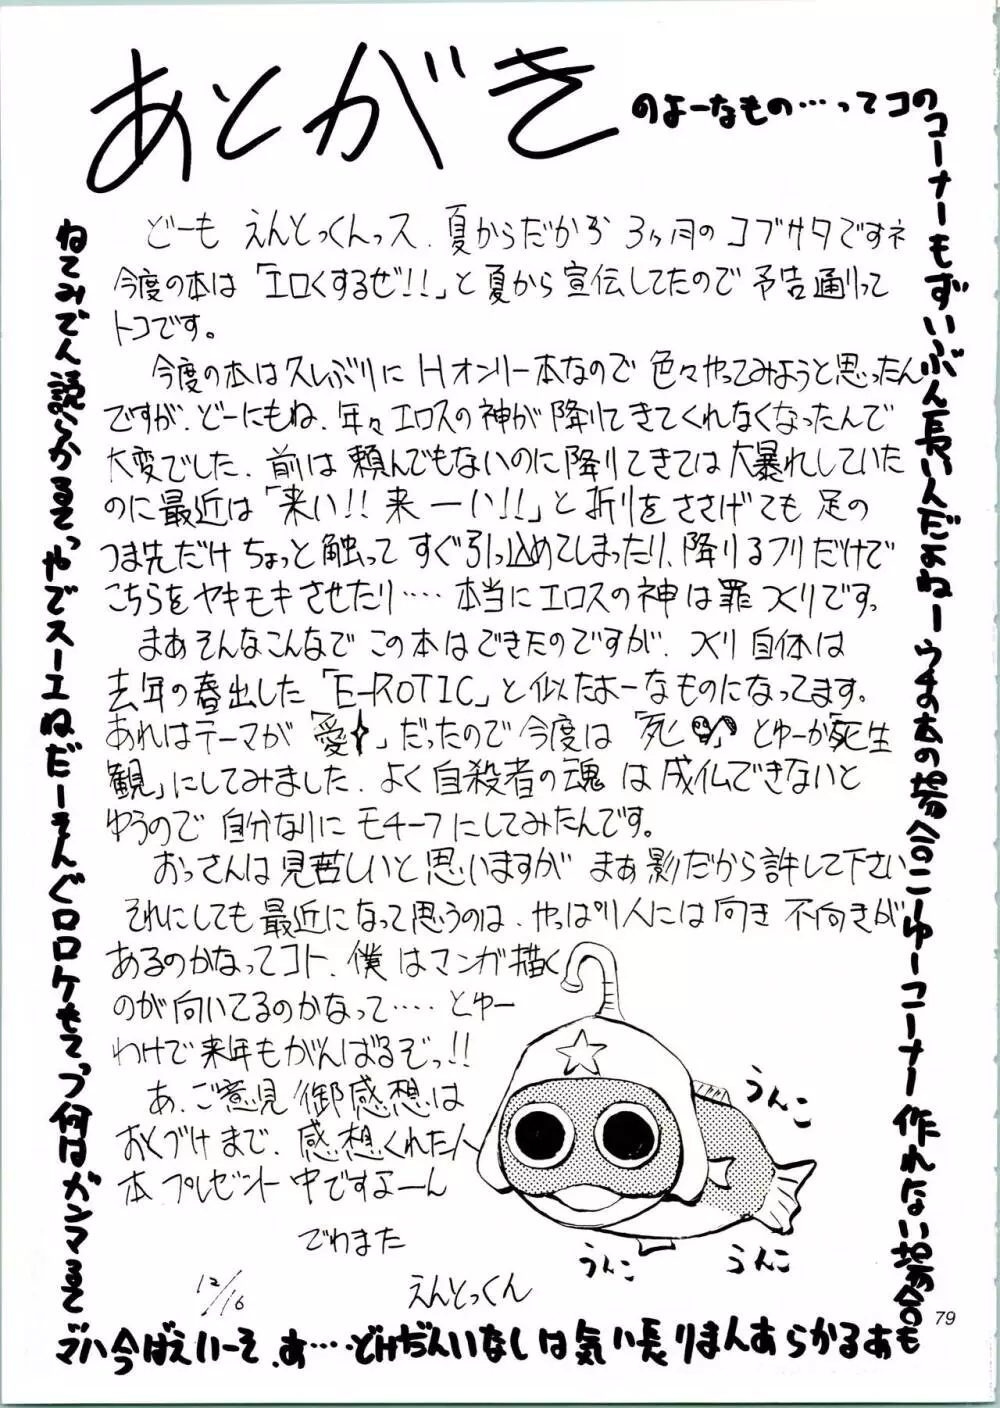 あとがき
のよーなもの…ってコの
コーナーもずいぶん長いんだよねーウチの本の場合こーゆーコーナー作れない場合
もあるからあんまり長い気はしないんだけど…。あ、そーいえば今ハマ
ってるマンガは何つってもケロロぐんそーだねエースでやってるから読んでみてね
どーも えんとっくんっス、夏からだから 3ヶ月のコブサタですネ
今度の本は「エロくするぜ!!」と夏から宣伝してたので 予告通りって
トコです。
今度の本は久しぶりにHオンリー本なので 色々やってみようと思ったん
ですが、どーにもね、年々エロスの神が降りてきてくれなくなったんで
大変でした、前は頼んでもないのに降りてきては大暴れしていた
のに最近は「来い!! 来ーい!!」と祈りをささげても 足の
つま先だけちょっと触ってすぐ引っ込めてしまったり、降りるフリだけで
こちらをヤキモキさせたり…‥本当にエロスの神は罪つくりですっ
まあそんなこんなでこの本はできたのですが、つくり自体は
去年の春出した「E-ROTIC」と似たよーなものになってます。
あれはテーマが「愛」だったので今度は「死」とゆーか「死生
観」にしてみました、よく自殺者の魂は成仏できないと
ゆうので自分なりにモチーフにしてみたんです。
おっさんは見苦しいと思いますが まあ影だから許して下さい
それにしても最近になって思うのは、やっぱり人には向き不向きが
あるのかなってコト、僕はマンガ描く
のが向いてるのかなって…‥とゆー
わけで来年もがんばるぞっ!!
あ、ご意見 御感想は
おくづけまで、感想くれた人
本プレゼント中ですよーん
でわまた
12/16
えんとっくん
うんこ
うんこ
うんこ
79